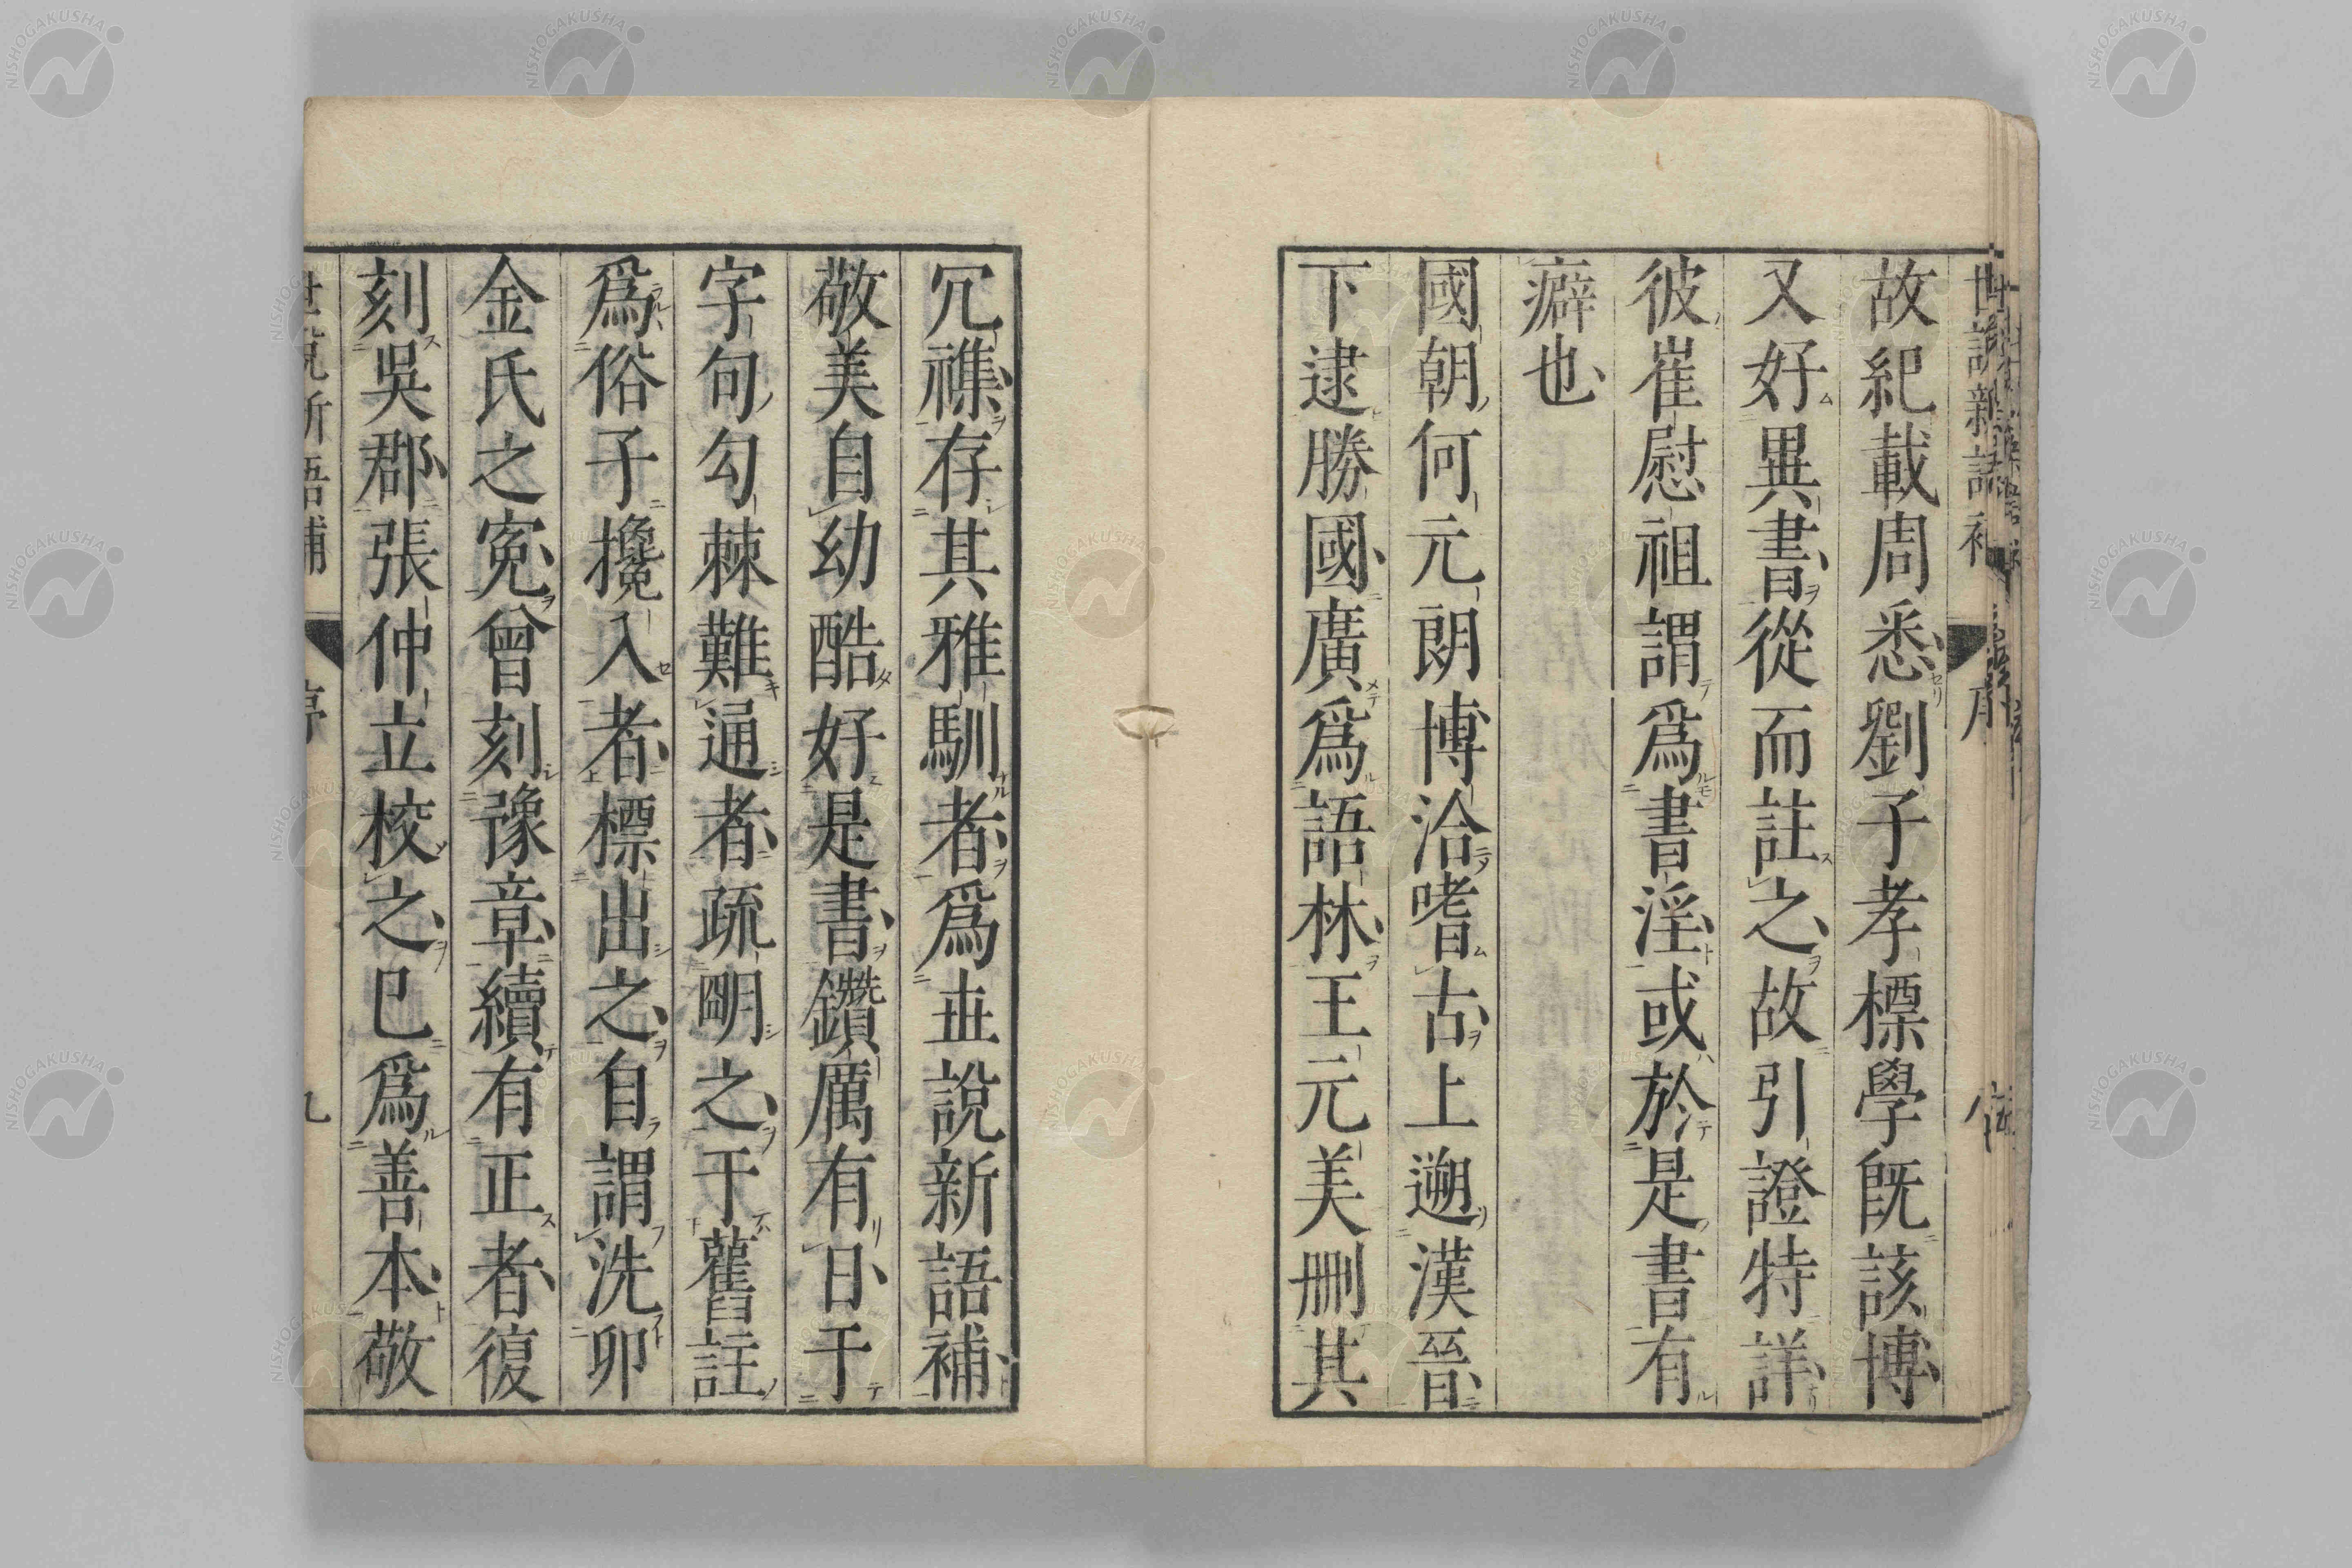 故紀載周悉劉子孝標學旣該博
又好異書從而註之故引證特詳
彼崔慰祖謂爲書淫或於是書有
癖也
國朝何元朗博洽嗜古上遡漢晉
下逮勝國廣爲語林王元美刪其
冗襍存其雅馴者爲世說新語補
敬美自幼酷好是書鑽厲有日于
字句勾棘難通者疏明之于舊註
爲俗子攙入者標出之自謂洗卯
金氏之寃曾刻豫章續有正者復
刻吳郡張仲立校之巳爲善本敬
世說新語補
序
九